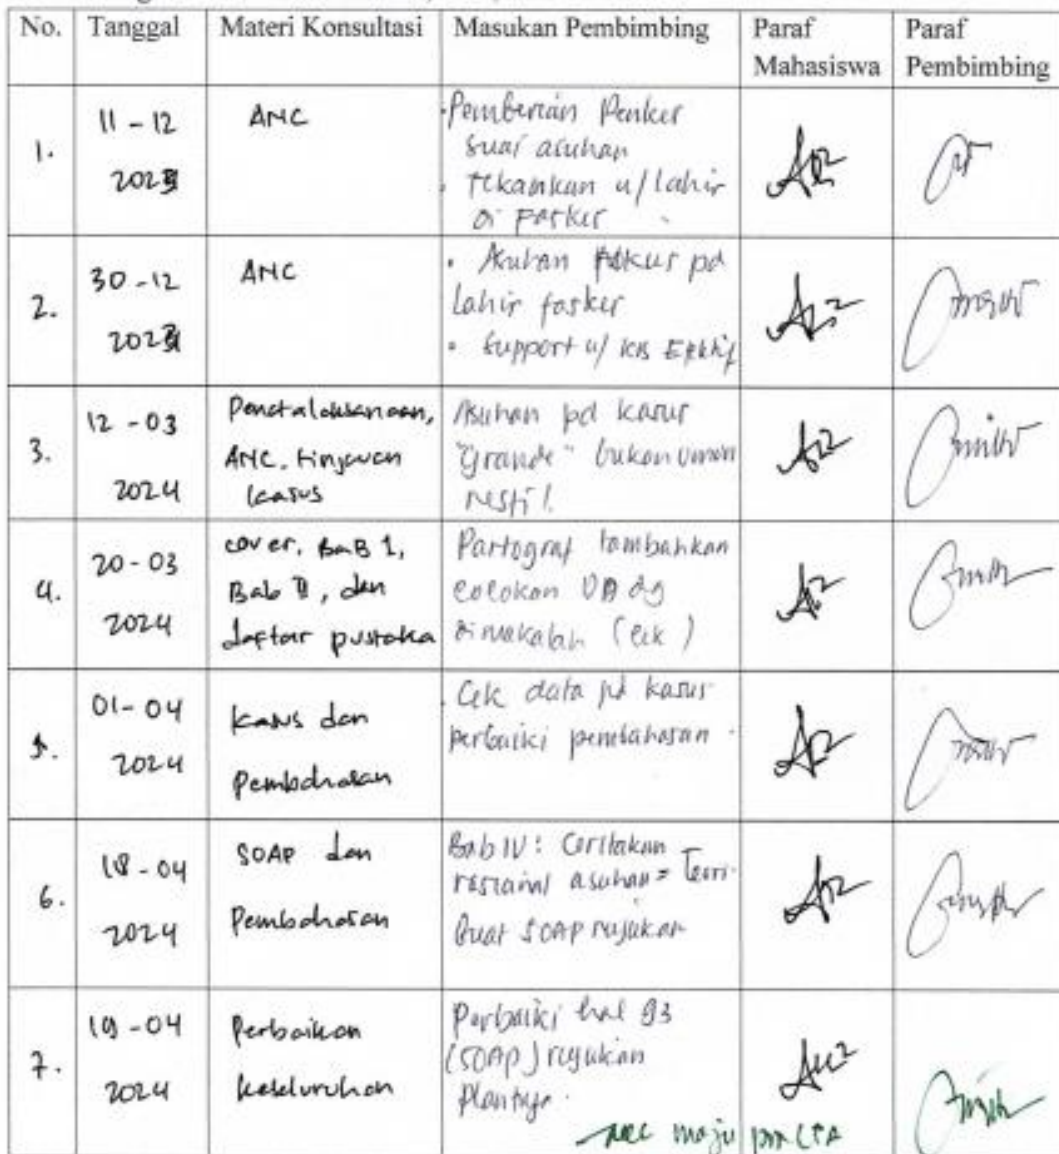 No. Tanggal Materi Konsultasi Masukan Pembimbing Paraf Mahasiswa Paraf Pembimbing
1.
11 - 12
2023
ANC
Pemberian Penker
suai asuhan
Tekankan u/ lahir
di Fasker
2.
30 - 12
2023
ANC
Asuhan Fokus pd
lahir fasker
Support u/ KB Efektif
3.
12 - 03
2024
Penatalaksanaan,
ANC, tinjauan
kasus
Asuhan pd kasus
"Grande" bukan umum
resti !.
4.
20 - 03
2024
cover, BAB 1,
Bab II, dan
daftar pustaka
Partograf tambahkan
cocokan dg
di makalah (cek)
5.
01 - 04
2024
kasus dan
Pembahasan
Cek data pd kasus
perbaiki pembahasan.
6.
18 - 04
2024
SOAP dan
Pembahasan
Bab IV : Ceritakan
rasional asuhan = Teori
Buat SOAP rujukan
7.
19 - 04
2024
Perbaikan
keseluruhan
Perbaiki hal 93
(SOAP) rujukan
maju